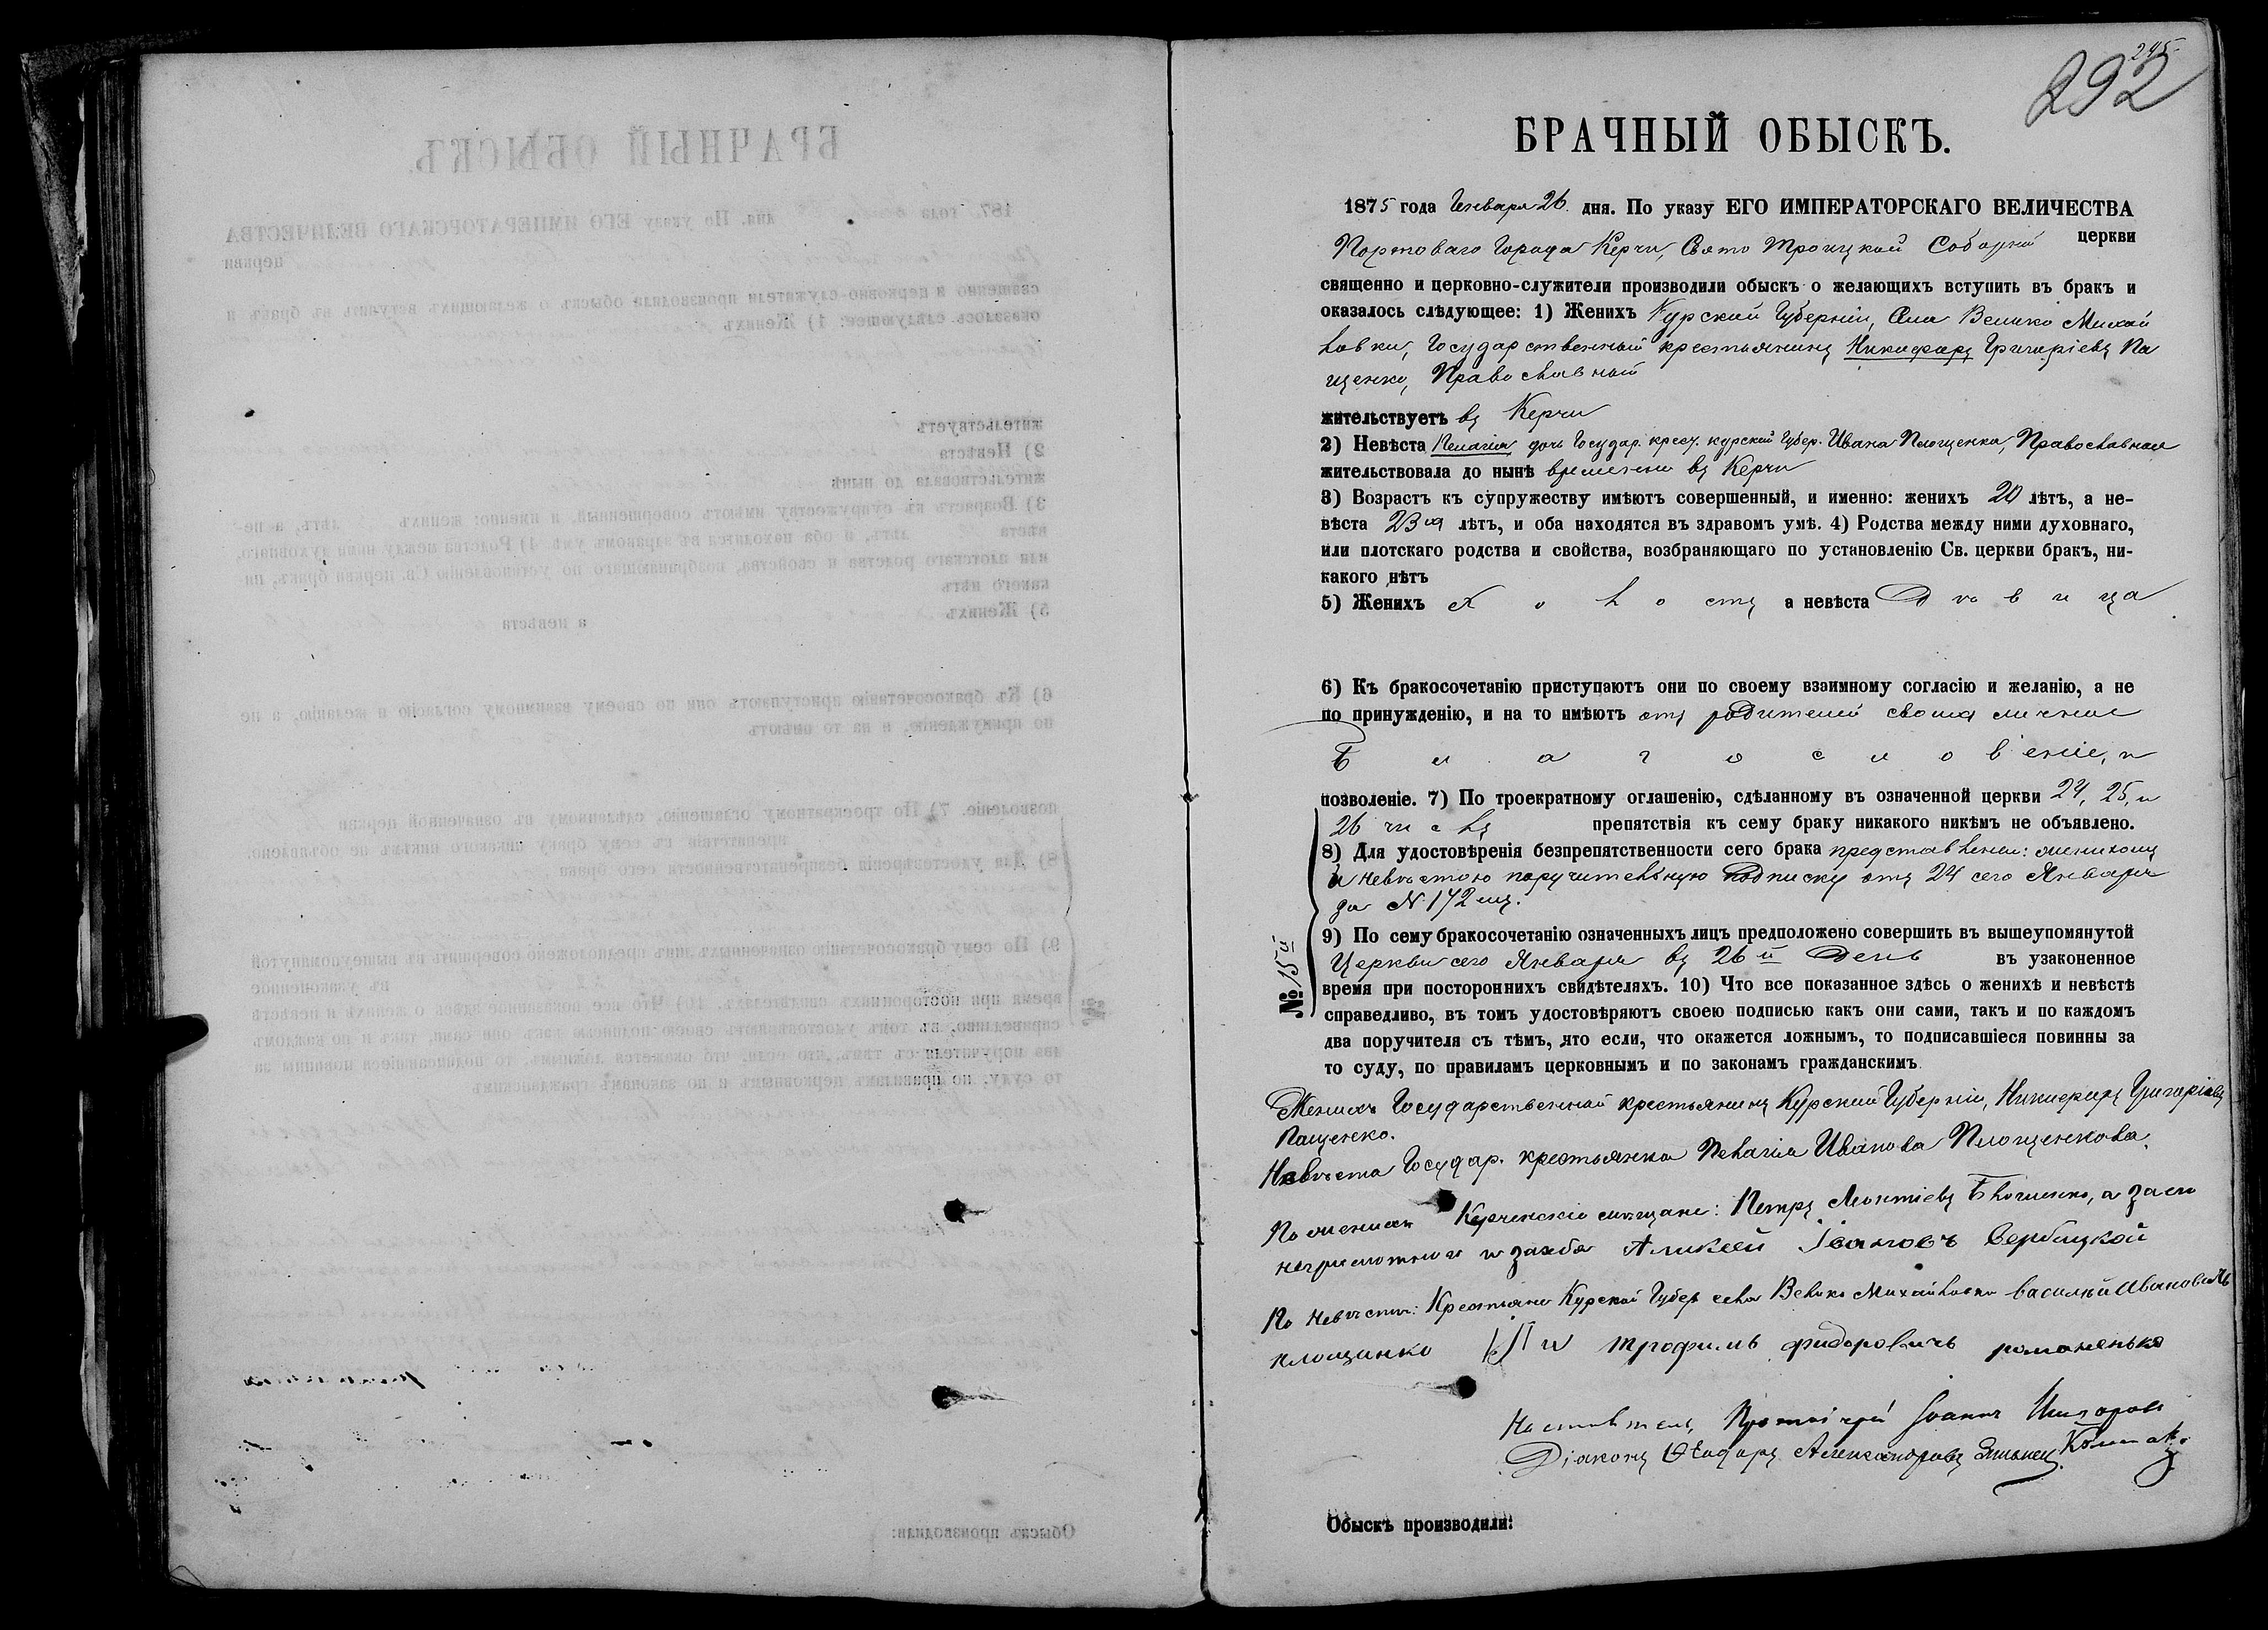 245
292
БРАЧНЫЙ ОБЫСКЪ.
1875 года Генваря 26 дня. По указу ЕГО ИМПЕРАТОРСКАГО ВЕЛИЧЕСТВА
Портоваго Города Керчи, Свято Троицкой Соборной церкви
священно и церковно-служители производили обыскъ о желающихъ вступить въ бракъ и
оказалось слѣдующее: 1) Женихъ Курской Губерніи, Села Велико Михай
ловки, Государственный крестьянинъ Никифоръ Григоріевъ Па
щенко, Православный
жительствуетъ въ Керчи
2) Невѣста Пелагія дочь Государ. крест. курской Губер. Ивана Площенка, Православная
жительствовала до нынѣ временно въ Керчи
3) Возрастъ къ супружеству имѣютъ совершенный, и именно: женихъ 20 лѣтъ, а не-
вѣста 23 лѣтъ, и оба находятся въ здравомъ умѣ. 4) Родства между ними духовнаго,
или плотскаго родства и свойства, возбраняющаго по установленію Св. церкви бракъ, ни-
какого нѣтъ
5) Женихъ Холостъ а невѣста Дѣвица
6) Къ бракосочетанію приступаютъ они по своему взаимному согласію и желанію, а не
по принужденію, и на то имѣютъ отъ родителей своихъ личное
Благословеніе, и
позволеніе. 7) По троекратному оглашенію, сдѣланному въ означенной церкви 24, 25, и
26 числъ препятствія къ сему браку никакого никѣмъ не объявлено.
8) Для удостовѣренія безпрепятственности сего брака представлена: женихомъ
и Невѣстою поручительную подписку отъ 24 сего Января
за N 172
9) По сему бракосочетанію означенныхъ лицъ предположено совершить въ вышеупомянутой
Церкви сего Января въ 26й День въ узаконенное
время при постороннихъ свидѣтеляхъ. 10) Что все показанное здѣсь о женихѣ и невѣстѣ
справедливо, въ томъ удостовѣряютъ своею подписью какъ они сами, такъ и по каждомъ
два поручителя съ тѣмъ, что если, что окажется ложнымъ, то подписавшіеся повинны за
то суду, по правиламъ церковнымъ и по законамъ гражданскимъ
№ 15й
Женихъ Государственной крестьянинъ Курской Губерніи, Никифоръ Григоріевъ
Пащенко.
Невѣста Государ. крестьянка Пелагія Иванова Площенкова.
По женихѣ Керченскіе мѣщане: Петръ Леонтіевъ, а за его
неграмотного и за себя Аликсей Івановъ Вербицкой
По Невѣстѣ: Крестьяне Курской Губер села Велико Михайловки Василій Ивановичъ
площинко и трофимъ фидоровичъ романенько
Настоятель, Протоіерей Іоаннъ
Діаконъ Ѳеодоръ Александровъ
Обыскъ производили: